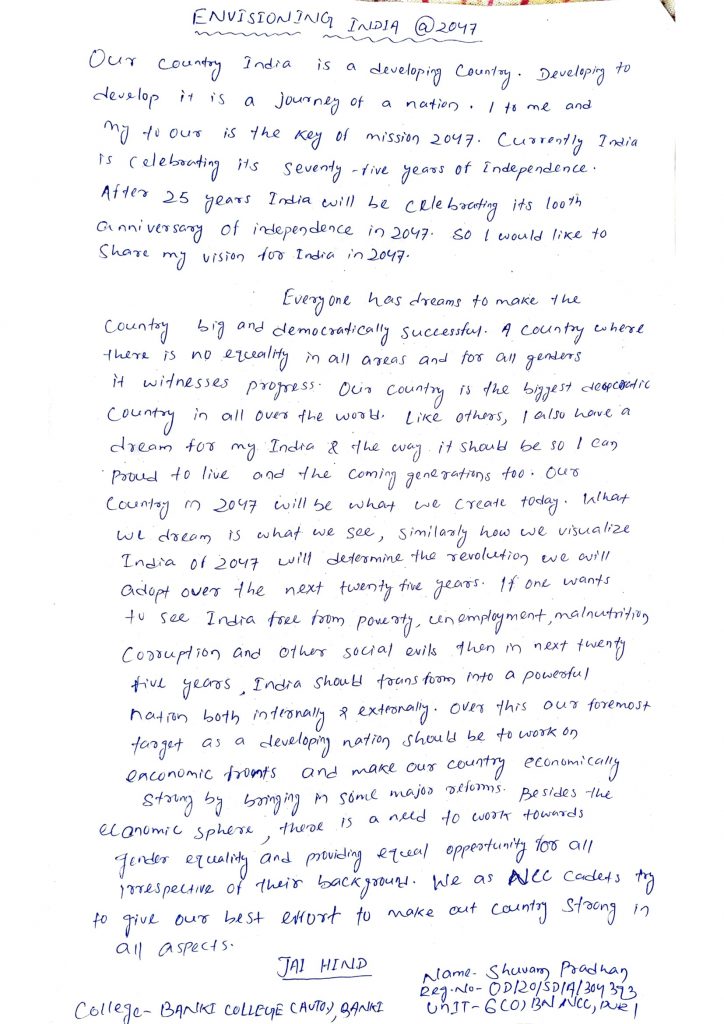 ENVISIONING INDIA @2047
Our country India is a developing country. Developing to
develop it is a journey of a nation. I to me and
my to our is the key of mission 2047. Currently India
is celebrating its seventy-five years of Independence.
After 25 years India will be celebrating its 100th
anniversary of independence in 2047. So I would like to
share my vision for India in 2047.
Everyone has dreams to make the
country big and democratically successful. A country where
there is no equality in all areas and for all genders
it witnesses progress. Our country is the biggest
country in all over the world. Like others, I also have a
dream for my India & the way it should be so I can
proud to live and the coming generations too. Our
country in 2047 will be what we create today. What
we dream is what we see, similarly how we visualize
India of 2047 will determine the revolution we will
adopt over the next twenty five years. If one wants
to see India free from poverty, unemployment, malnutrition
corruption and other social evils then in next twenty
five years, India should transform into a powerful
nation both internally & externally. Over this our foremost
target as a developing nation should be to work on
enconomic fronts and make our country economically
strong by bringing in some major reforms. Besides the
economic sphere, there is a need to work towards
gender equality and providing equal oppertunity for all
irrespective of their background. We as NCC cadets try
to give our best effort to make out country strong in
all aspects.
JAI HIND
Name- Shuvam Pradhan
Reg.No- OD/20/SD/A/304393
College- BANKI COLLEGE (AUTO), BANKI
UNIT- 6(O) BN NCC, PURI